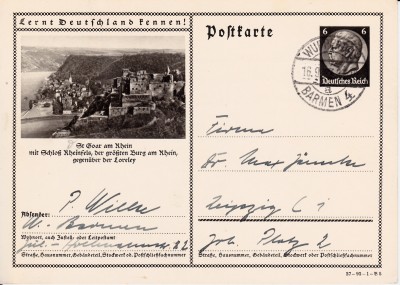 Lernt Deutschland kennen!
St Goar am Rhein
mit Schloß Rheinfels, der größten Burg am Rhein,
gegenüber der Loreley
P. Wille
Absender:
W.-Barmen
Wohnort, auch Zustell- oder Leitpostamt
Straße, Hausnummer, Gebäudeteil, Stockwerk oder Postschließfachnummer
Postkarte
6 6
Deutsches Reich
BARMEN 4
a
Firma
Dr. Max Jänecke
Leipzig C 1
Platz 2
Straße, Hausnummer, Gebäudeteil, Stockwerk oder Postschließfachnummer